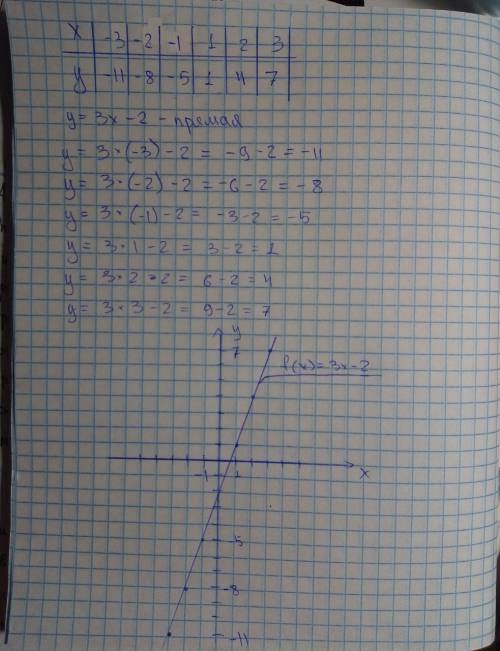 x -3 -2 -1 1 2 3
y -11 -8 -5 1 4 7
y = 3x - 2 - прямая
y = 3 · (-3) - 2 = -9 - 2 = -11
y = 3 · (-2) - 2 = -6 - 2 = -8
y = 3 · (-1) - 2 = -3 - 2 = -5
y = 3 · 1 - 2 = 3 - 2 = 1
y = 3 · 2 - 2 = 6 - 2 = 4
y = 3 · 3 - 2 = 9 - 2 = 7
y
7
f(x) = 3x - 2
-1 1 x
-5
-8
-11